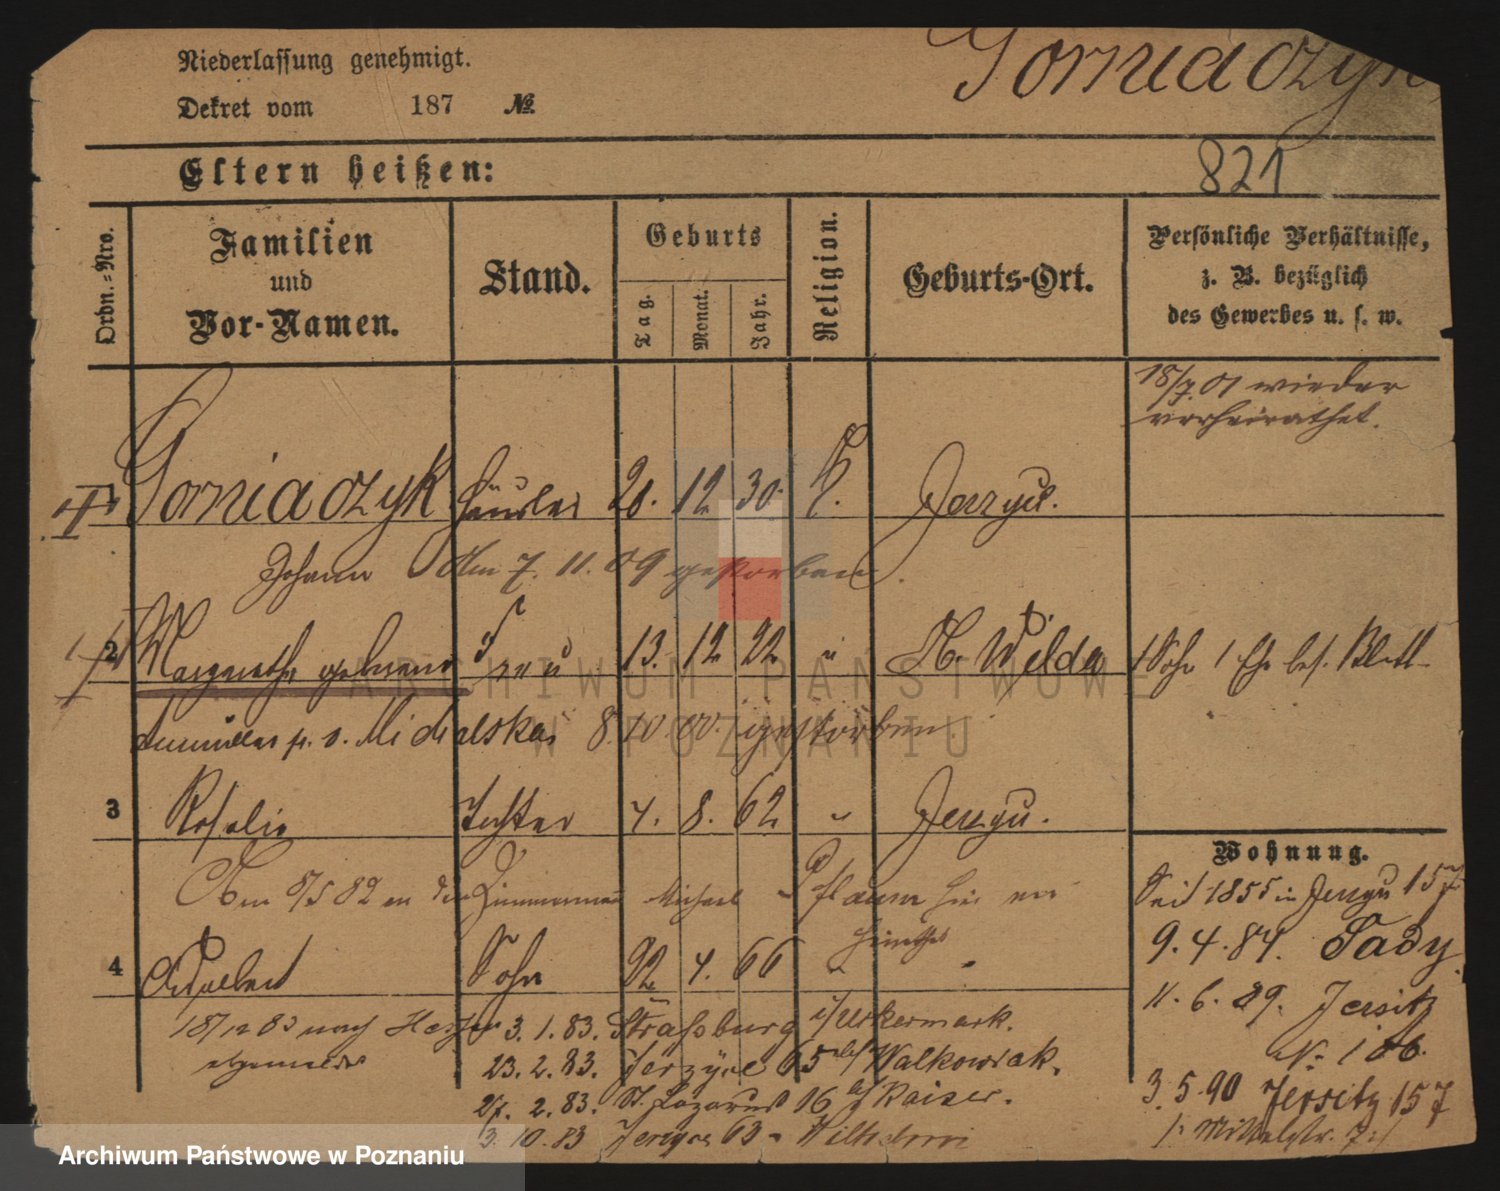 Niederlassung genehmigt.
Gorniaczyk
Dekret vom 187 №
Eltern heißen:
821
Ordn.-Nro.
Familien und Vor-Namen.
Stand.
Geburts
Tag.
Monat.
Jahr.
Religion.
Geburts-Ort.
Persönliche Verhältnisse,
z. B. bezüglich
des Gewerbes u. s. w.
18/7. 01 wieder
verheirathet.
1 Gorniaczyk Häusler 20. 12. 30. K. Jerzyce.
Johann Am 7. 11. 09 gestorben.
2 Margarethe geborene Frau 13. 12 22 " Wilda 1 Sohn 1 Ehe bes. Blatt
Michalska 8. 10. 00. gestorben.
ARCHIWUM PAŃSTWOWE
W POZNANIU
3 Rosalie Tochter 4. 8. 62 " Jerzyce.
Wohnung.
Am 8/5 82 an den Zimmermann Michael Pflaum hier
Seit 1855 in Jerzyce 157
9. 4. 84. Sady.
4 Adalbert Sohn 22 4. 66 " "
11. 6. 89. Jersitz
№ 106.
18/12 83 nach
abgemeldet
3. 1. 83. Straßburg i/Uckermark.
23. 2. 83. Jerzyce 65 bei Walkowiak.
3. 5. 90 Jersitz 157
27. 2. 83. St. Lazarus 16 bei Kaiser.
3. 10. 83 Jerzyce 63 Wilhelmi
Mittelstr. 7
Archiwum Państwowe w Poznaniu